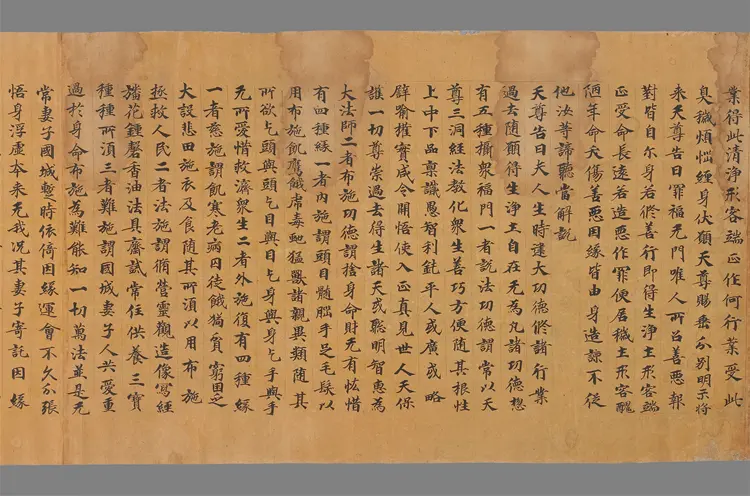 業得此清淨形容端正作何行業受此
臭穢煩惱經身伏願天尊賜垂分別明示將
来天尊告曰罪福无門唯人所召善惡報
對皆自尒身若修善行即得生淨土形容端
正受命長遠若造惡作罪便居穢土形容醜
年命夭傷善惡因緣皆由身造諒不從
他汝等諦聽當解說
天尊告曰夫人生時建大功德修諸行業
過去随願得生淨土自在无為凡諸功德惣
有五種攝衆福門一者說法功德謂常以天
尊三洞經法教化衆生善巧方便随其根性
上中下品稟識愚智利鈍平人或廣或略
譬喻權實咸令開悟使入正真見世人天保
護一切尊崇過去得生諸天或聡明智惠為
大法師二者布施功德謂捨身命財无有悋惜
有四種緣一者內施謂頭目髓𦙄手足毛髮以
用布施飢鷹餓虎毒虵猛獸諸親異類随其
所欲乞頭與頭乞目與目乞身與身乞手與手
无所愛惜救濟衆生二者外施復有四種緣
一者慈施謂飢寒老病囚徒餓狗貧窮困乏
大設悲田施衣及食随其所須以用布施
拯救人民二者法施謂脩營靈觀造像寫經
旛花鍾磬香油法具齋試常住供養三寶
種種所須三者難施謂國城妻子人共愛重
過於身命布施為難能知一切萬法並是无
常妻子國城暫時依倚因緣運會不久分張
悟身浮虛本来无我況其妻子寄託因緣